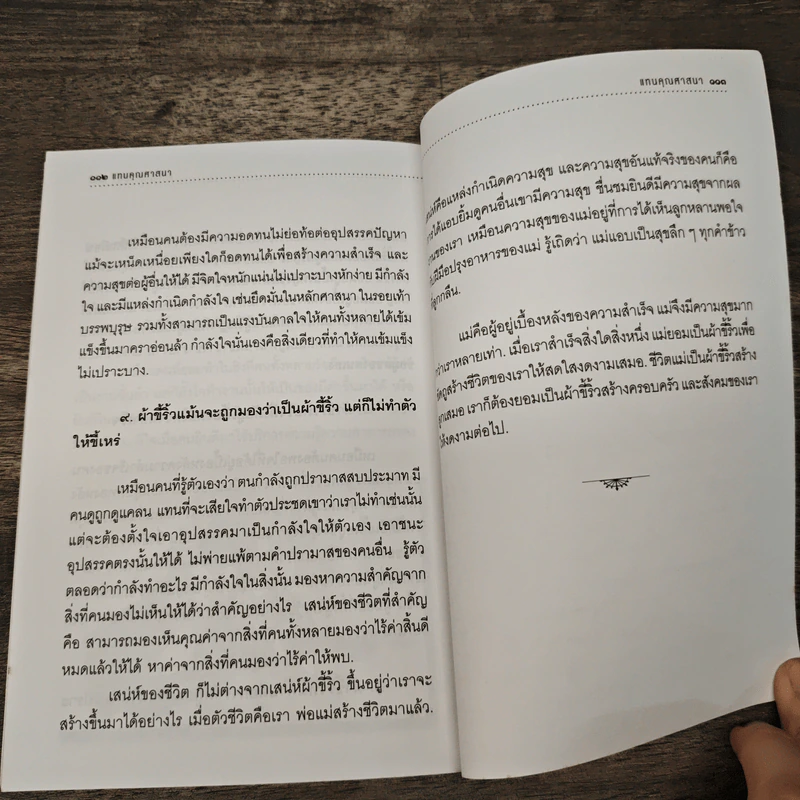 ๑๑๒ แทนคุณศาสนา
เหมือนคนต้องมีความอดทนไม่ย่อท้อต่ออุปสรรคปัญหา
แม้จะเหน็ดเหนื่อยเพียงใดก็อดทนได้เพื่อสร้างความสำเร็จ และ
ความสุขต่อผู้อื่นให้ได้ มีจิตใจหนักแน่นไม่เปราะบางหักง่าย มีกำลัง
ใจ และมีแหล่งกำเนิดกำลังใจ เช่นยึดมั่นในหลักศาสนา ในรอยเท้า
บรรพบุรุษ รวมทั้งสามารถเป็นแรงบันดาลใจให้คนทั้งหลายได้เข้ม
แข็งขึ้นมาคราอ่อนล้า กำลังใจนั่นเองคือสิ่งเดียวที่ทำให้คนเข้มแข็ง
ไม่เปราะบาง.
๙. ผ้าขี้ริ้วแม้นจะถูกมองว่าเป็นผ้าขี้ริ้ว แต่ก็ไม่ทำตัว
ให้ขี้เหร่
เหมือนคนที่รู้ตัวเองว่า ตนกำลังถูกปรามาสสบประมาท มี
คนดูถูกดูแคลน แทนที่จะเสียใจทำตัวประชดเขาว่าเราไม่ทำเช่นนั้น
แต่จะต้องตั้งใจเอาอุปสรรคมาเป็นกำลังใจให้ตัวเอง เอาชนะ
อุปสรรคตรงนั้นให้ได้ ไม่พ่ายแพ้ตามคำปรามาสของคนอื่น รู้ตัว
ตลอดว่ากำลังทำอะไร มีกำลังใจในสิ่งนั้น มองหาความสำคัญจาก
สิ่งที่คนมองไม่เห็นให้ได้ว่าสำคัญอย่างไร เสน่ห์ของชีวิตที่สำคัญ
คือ สามารถมองเห็นคุณค่าจากสิ่งที่คนทั้งหลายมองว่าไร้ค่าสิ้นดี
หมดแล้วให้ได้ หาค่าจากสิ่งที่คนมองว่าไร้ค่าให้พบ.
เสน่ห์ของชีวิต ก็ไม่ต่างจากเสน่ห์ผ้าขี้ริ้ว ขึ้นอยู่ว่าเราจะ
สร้างขึ้นมาได้อย่างไร เมื่อตัวชีวิตคือเรา พ่อแม่สร้างชีวิตมาแล้ว.
แทนคุณศาสนา ๑๑๓
คือแหล่งกำเนิดความสุข และความสุขอันแท้จริงของคนก็คือ
การได้แอบยิ้มดูคนอื่นเขามีความสุข ชื่นชมยินดีมีความสุขจากผล
งานของเรา เหมือนความสุขของแม่อยู่ที่การได้เห็นลูกหลานพอใจ
ฝีมือปรุงอาหารของแม่ รู้เถิดว่า แม่แอบเป็นสุขลึก ๆ ทุกคำข้าว
ที่ลูกกลืน.
แม่คือผู้อยู่เบื้องหลังของความสำเร็จ แม่จึงมีความสุขมาก
กว่าเราหลายเท่า. เมื่อเราสำเร็จสิ่งใดสิ่งหนึ่ง แม่ยอมเป็นผ้าขี้ริ้วเพื่อ
ขัดถูสร้างชีวิตของเราให้สดใสงดงามเสมอ. ชีวิตแม่เป็นผ้าขี้ริ้วสร้าง
ลูกเสมอ เราก็ต้องยอมเป็นผ้าขี้ริ้วสร้างครอบครัว และสังคมของเรา
ให้งดงามต่อไป.